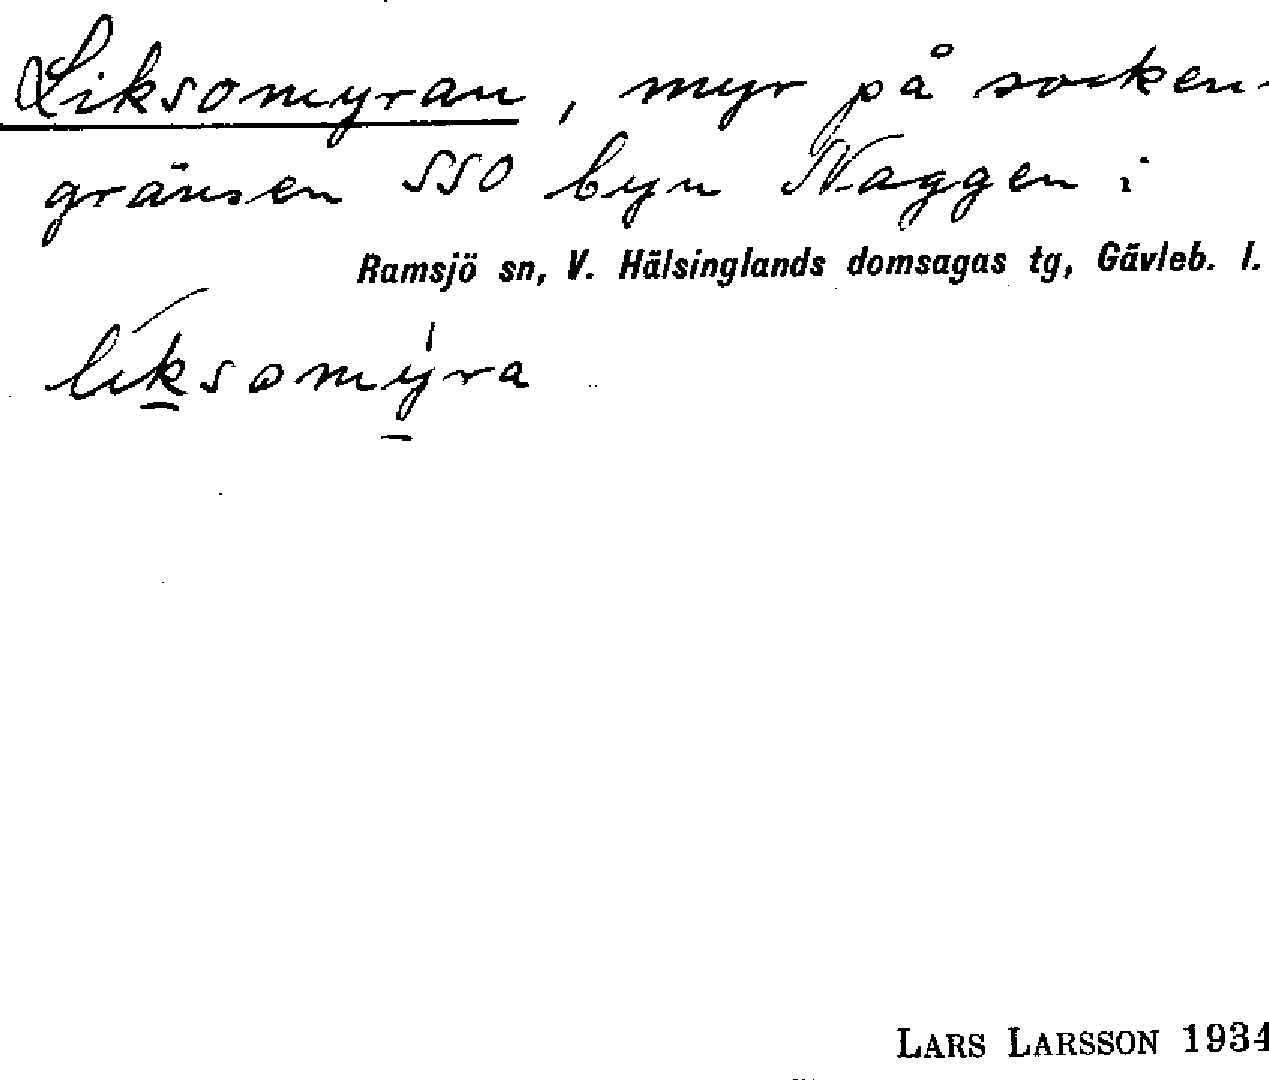 Liksomyran, myr på socken-
gränsen SSO byn Naggen i
Ramsjö sn, V. Hälsinglands domsagas tg, Gävleb. l.
liksomýra
LARS LARSSON 1934